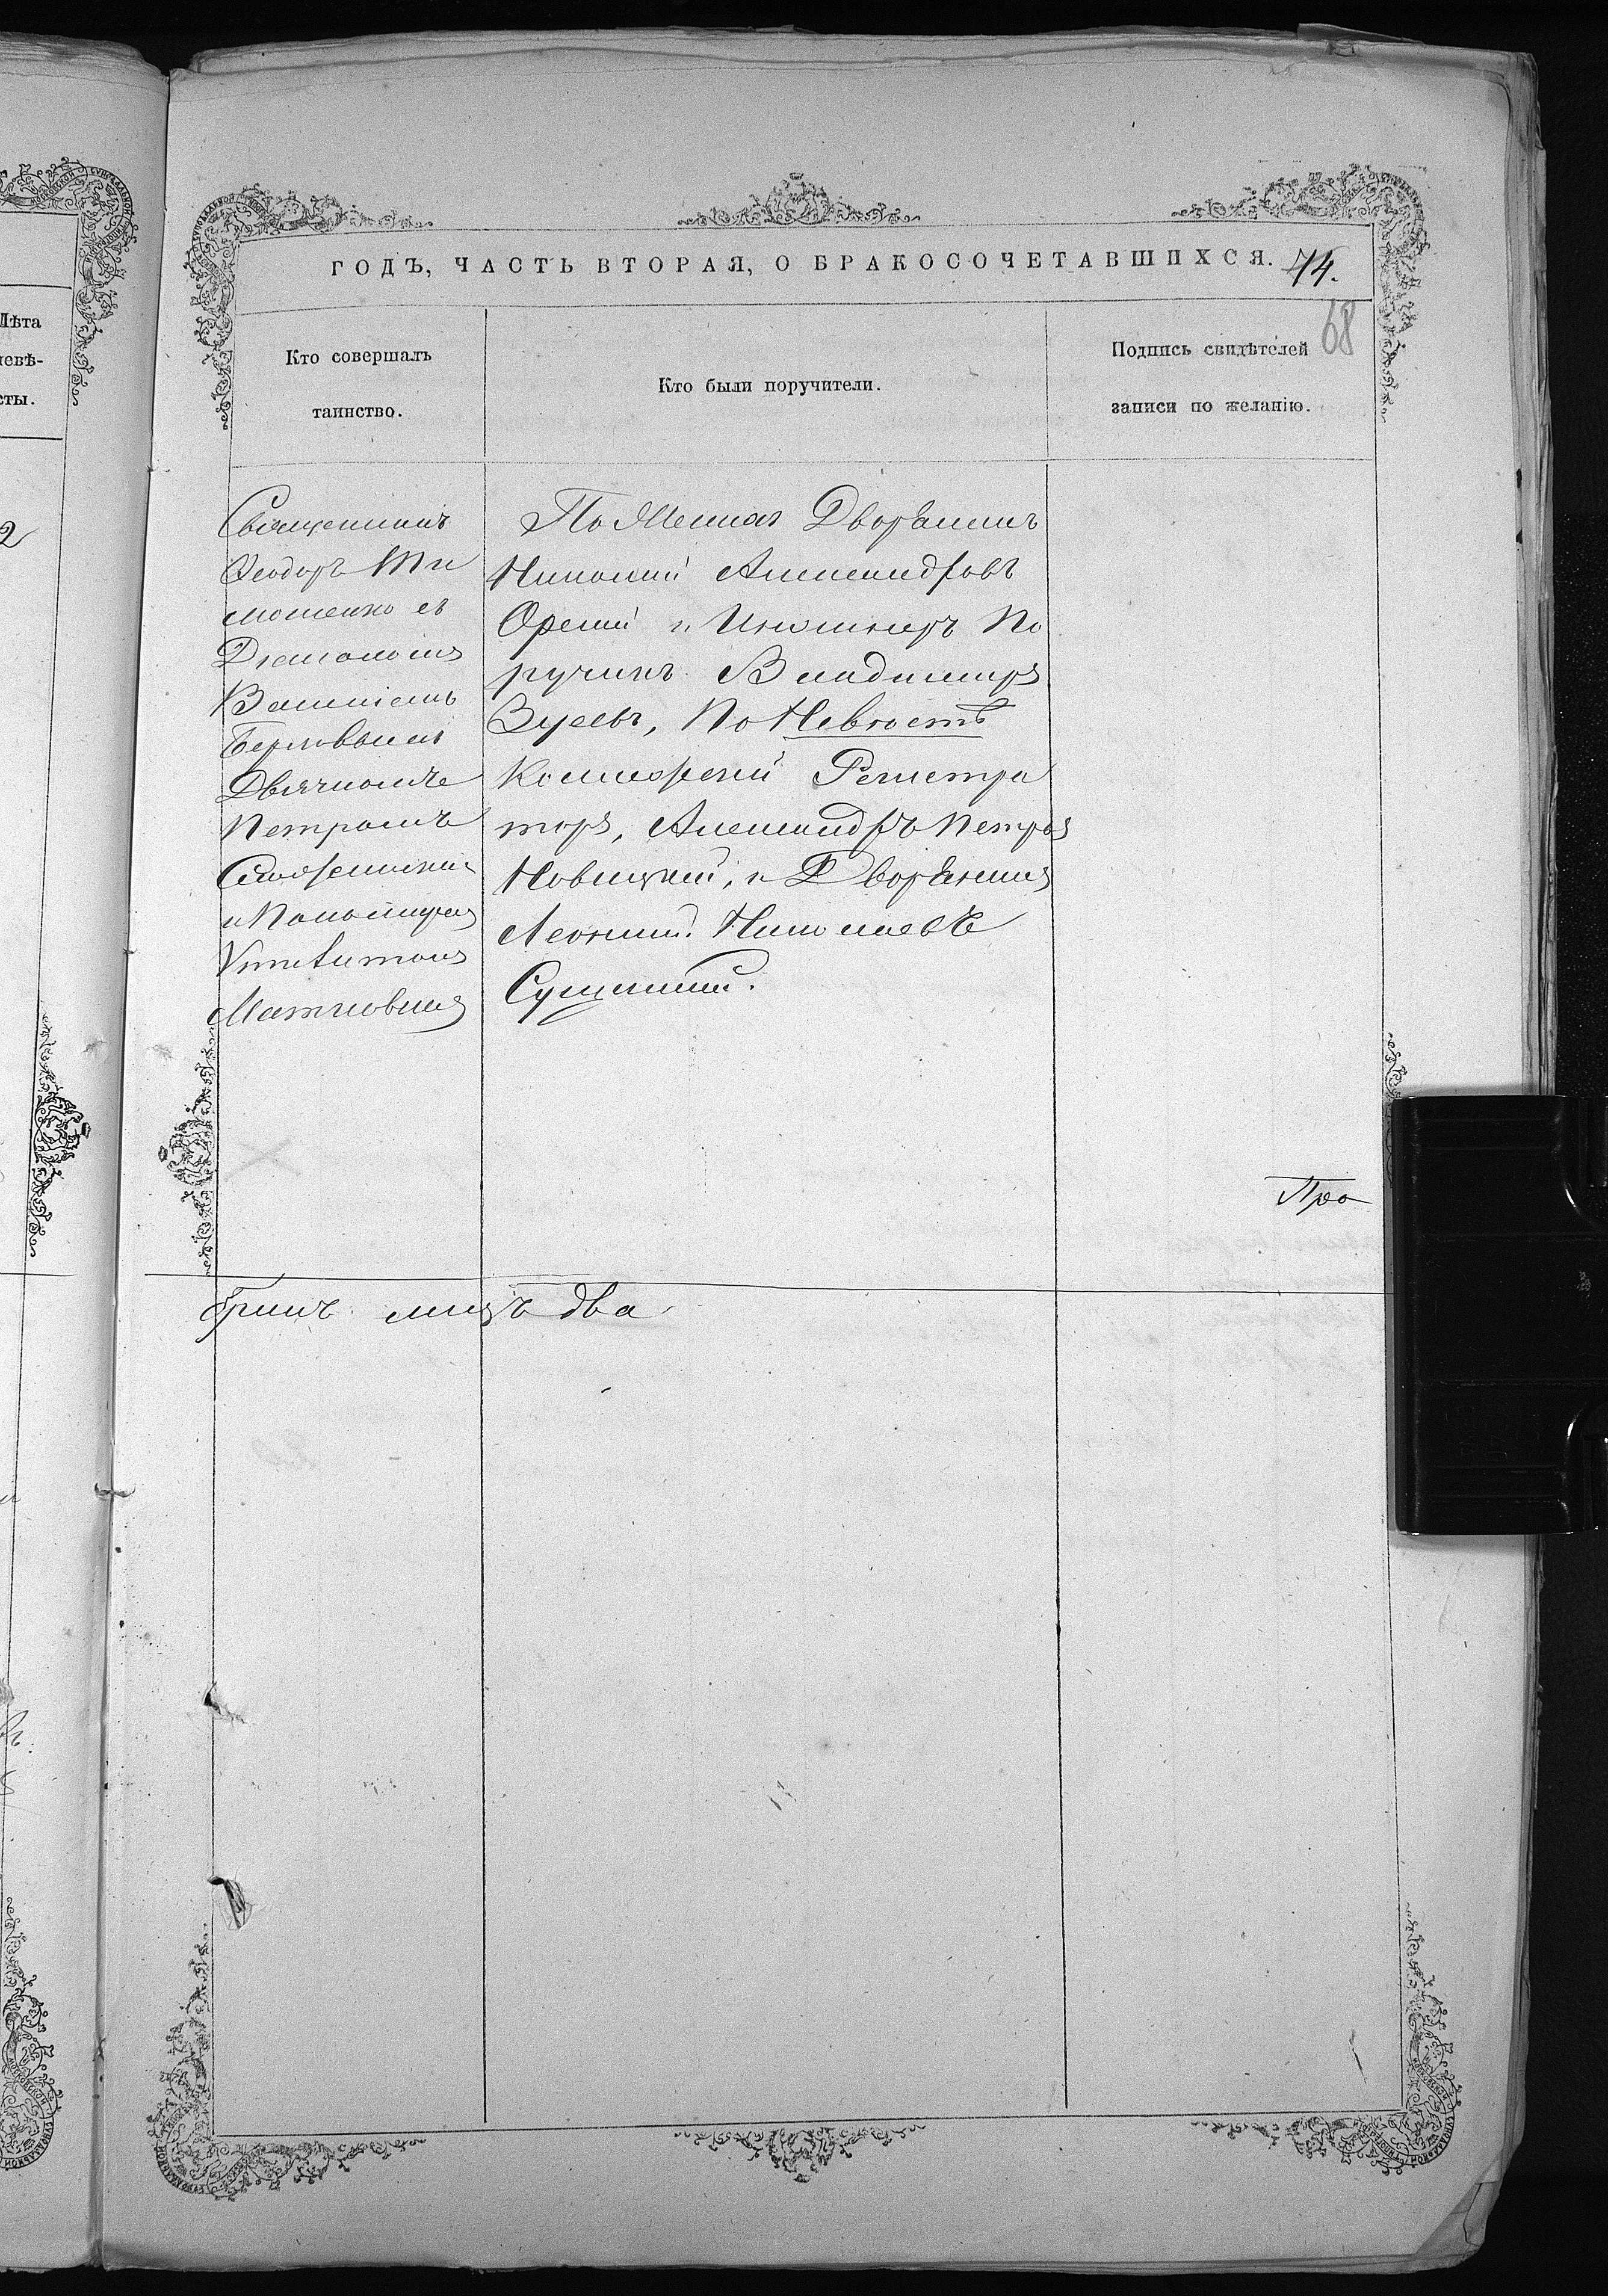 Лѣта
невѣ-
сты.
2
ГОДЪ, ЧАСТЬ ВТОРАЯ, О БРАКОСОЧЕТАВШИХСЯ. 74.
68
Кто совершалъ
таинство.
Кто были поручители.
Подпись свидѣтелей
записи по желанію.
Священникъ
Ѳеодоръ Ти
мошенко съ
Діакономъ
Василіемъ
Дьячкомъ
Петромъ
и Пономаремъ
По Женихѣ Дворянинъ
Николай Александровъ
и Инженеръ По
ручикъ Владиміръ
Зуевъ, По Невѣстѣ
Коллежскій Регистра
торъ, Александръ Петровъ
Новицкій, и Дворянинъ
Леонид. Николаевъ
Сущинскій.
Про
бракъ лицъ два